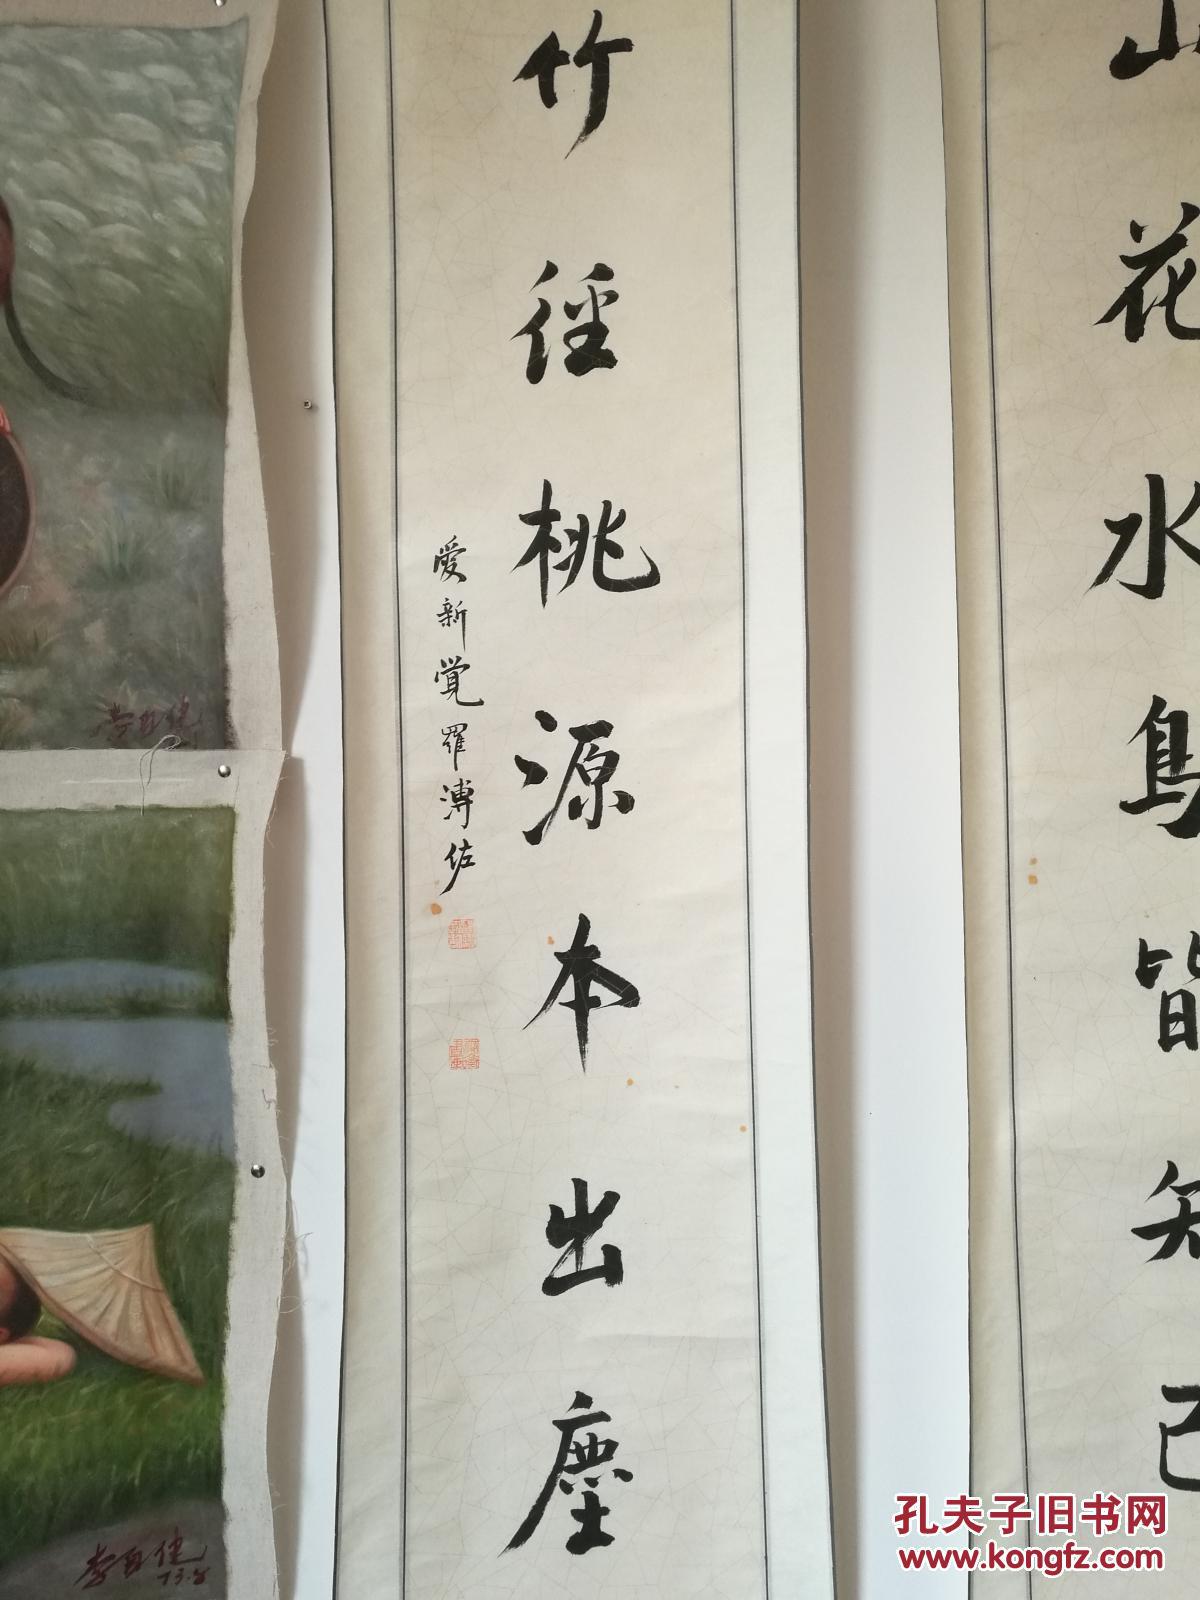 山花水鳥皆知己
竹径桃源本出塵
愛新覚羅溥佐
李自健
李自健
孔夫子旧书网
www.kongfz.com